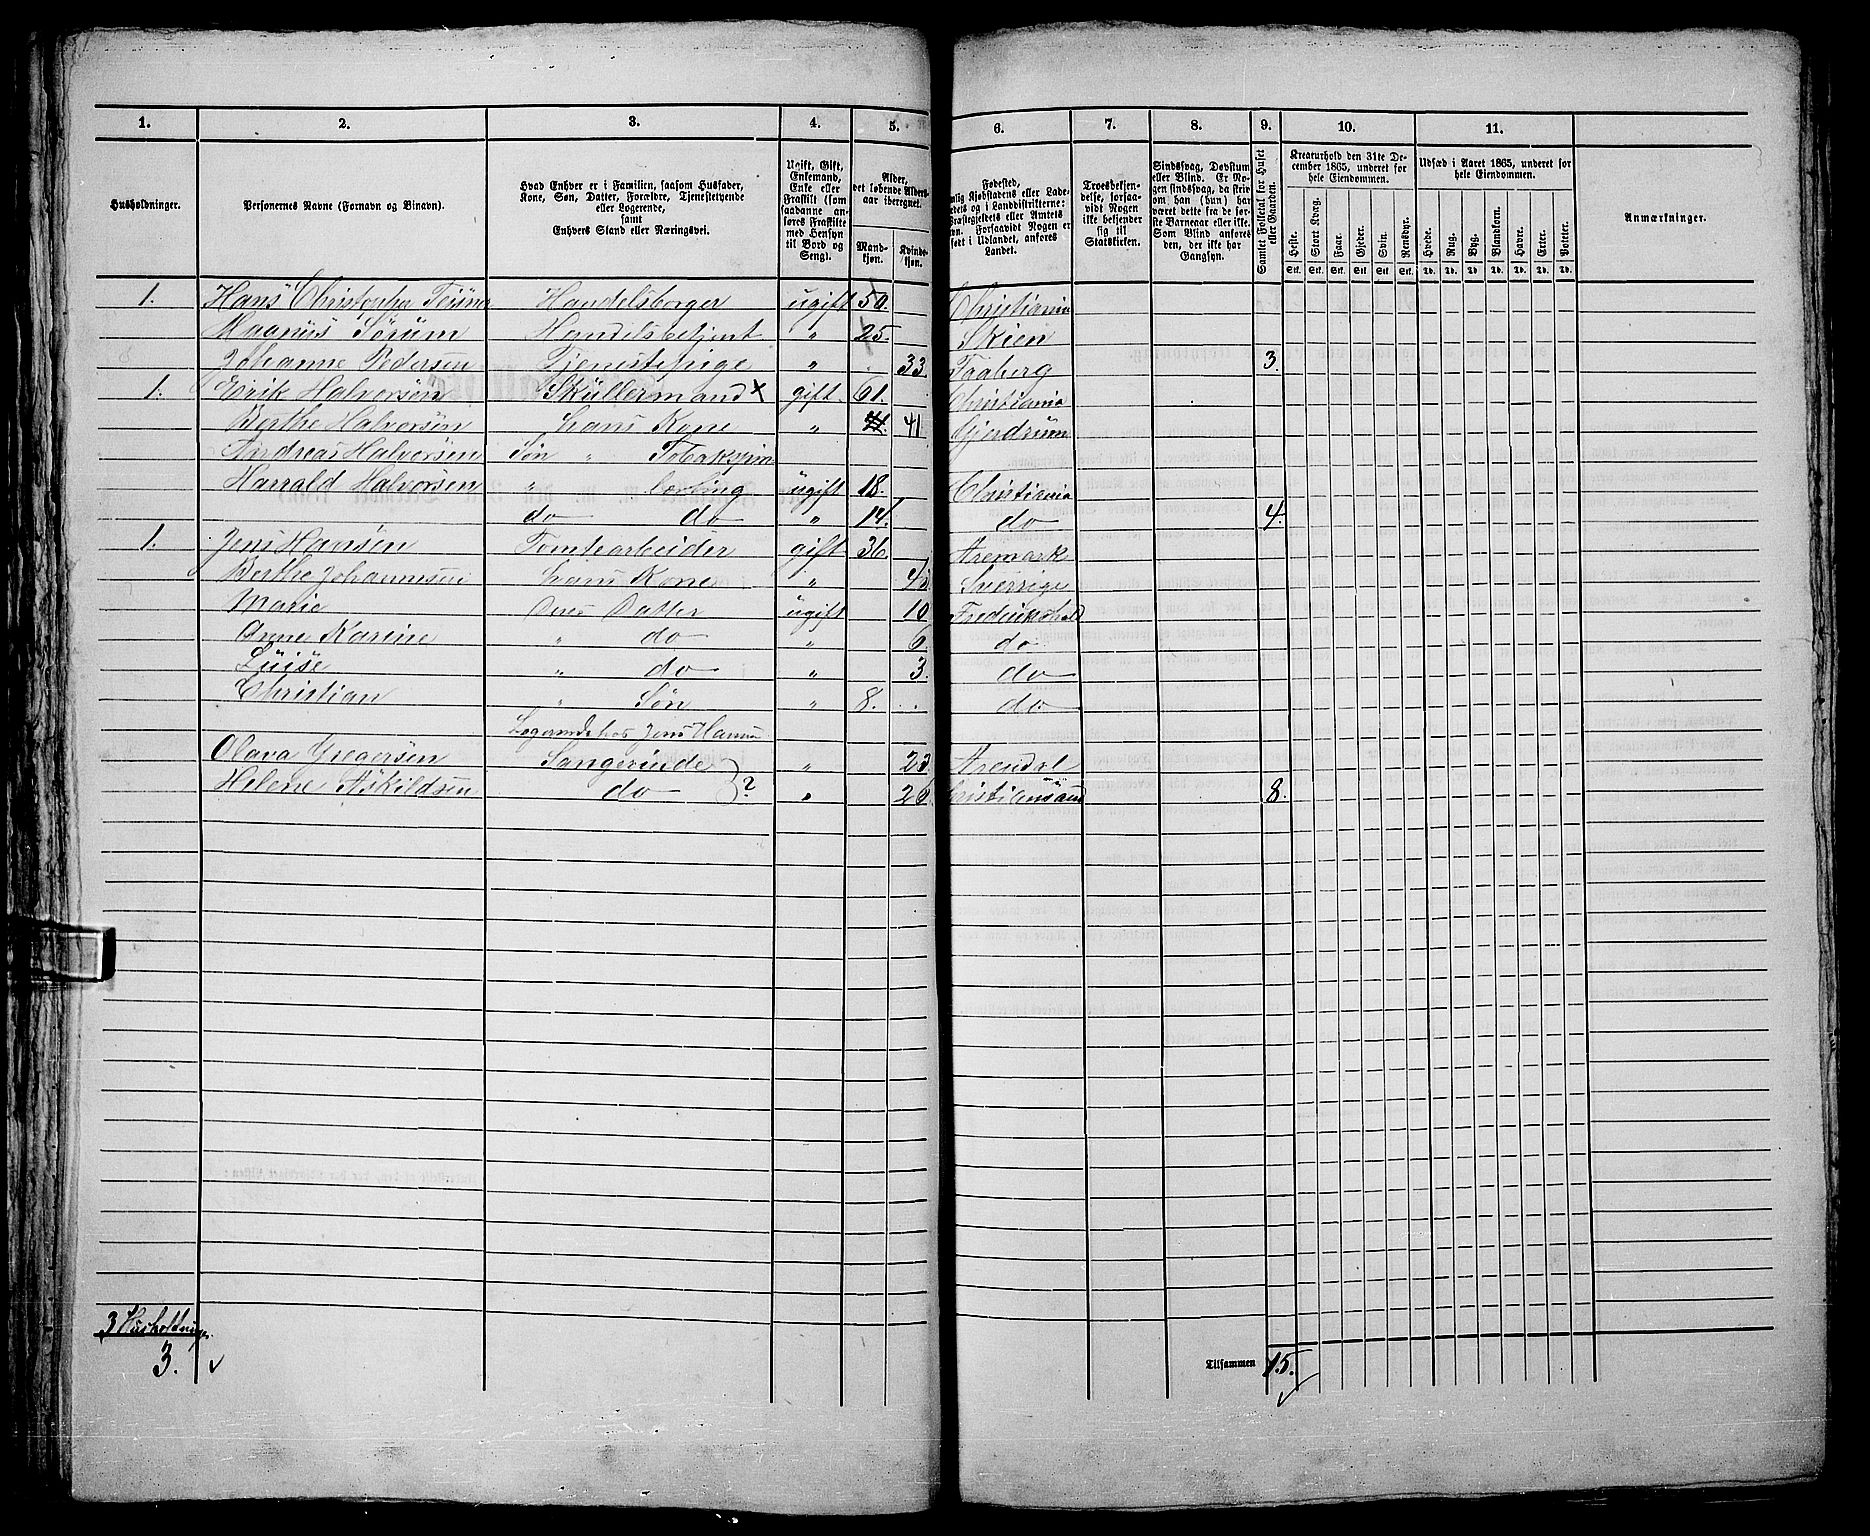 1. 2. 3. 4. 5. 6. 7. 8. 9. 10. 11.
Husholdninger.
Personernes Navne (Fornavn og Binavn).
Hvad Enhver er i Familien, saasom Husfader,
Kone, Søn, Datter, Forældre, Tjenestetyende
eller Logerende,
samt
Enhvers Stand eller Næringsvei.
Ugift, Gift,
Enkemand,
Enke eller
Fraskilt (som
saadanne an-
føres Fraskilte
med Hensyn
til Bord og
Seng).
Alder,
det løbende Alders-
aar iberegnet.
Mand-
kjøn.
Kvinde-
kjøn.
Fødested,
Landet.
Troesbekjen-
delse, forsaa-
vidt Nogen
ikke bekjender
sig til
Statskirken.
Sindssvag, Døvstum
eller Blind. Er No-
gen sindssvag, da skriv
om han (hun) har
været dette fra de før-
ste Barneaar eller ikke.
Som Blind anføres
den, der ikke har
Gangsyn.
Samlet Folketal for Huset
eller Gaarden.
Kreaturhold den 31te De-
cember 1865, underet for
hele Eiendommen.
Heste. Stort Kvæg. Faar. Gjeder. Svin. Rensdyr.
Stk. Stk. Stk. Stk. Stk. Stk.
Udsæd i Aaret 1865, underet for
hele Eiendommen.
Hvede. Rug. Byg. Blandkorn. Havre. Erter. Poteter.
Td. Td. Td. Td. Td. Td. Td.
Anmærkninger.
1. Hans Christopher Handelsborger ugift 50. Christiania
Magnus Sørum Handelsbetjent " 25. Skien
Johanne Pedersen Tjenestepige " 33 Faaberg 3.
1. Erik Halversen Sküllermand x gift. 61. Christiania
Berthe Halversen hans Kone " 41 Gjerdrum
Andreas Halversen Søn " Tobakspin
Harrald Halversen " lærling ugift 18. Christiania
do do " 14. do 4.
1. Jens Hansen Tomtearbeider gift 36 Aremark
Berthe Johannesen hans Kone " Sverrige
Marie Datter ugift 10 Fredrikshald
Anne Karine " do " 6. do
Luise " do " 3. do
Christian " Søn " 8. do
Logerende hos Jens Hansen
Olava Gregersen Sangerinde " 23 Arendal
Helene Askildsen do ? " 26 Christiansand 8.
3 Husholdninger
3.
Tilsammen 15.